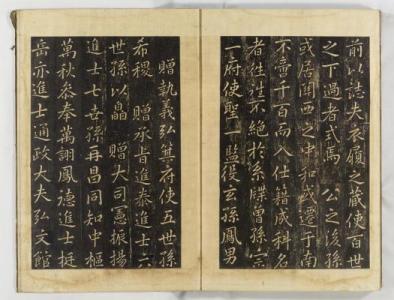 前以誌夫衣履之藏使百世
之下過者式焉 公之後孫
或居關西之中和或遷于南
不啻千百而入仕籍成科名
者往往不絶於系牒曾孫宗
一府使聖一監役玄孫鳳男
贈執義弘箕府使五世孫
希稷 贈承旨進泰進士六
世孫以皛 贈大司憲振揚
進士七世孫再昌同知中樞
萬秋參奉萬詡鳳德進士挺
岳亦進士通政大夫弘文館